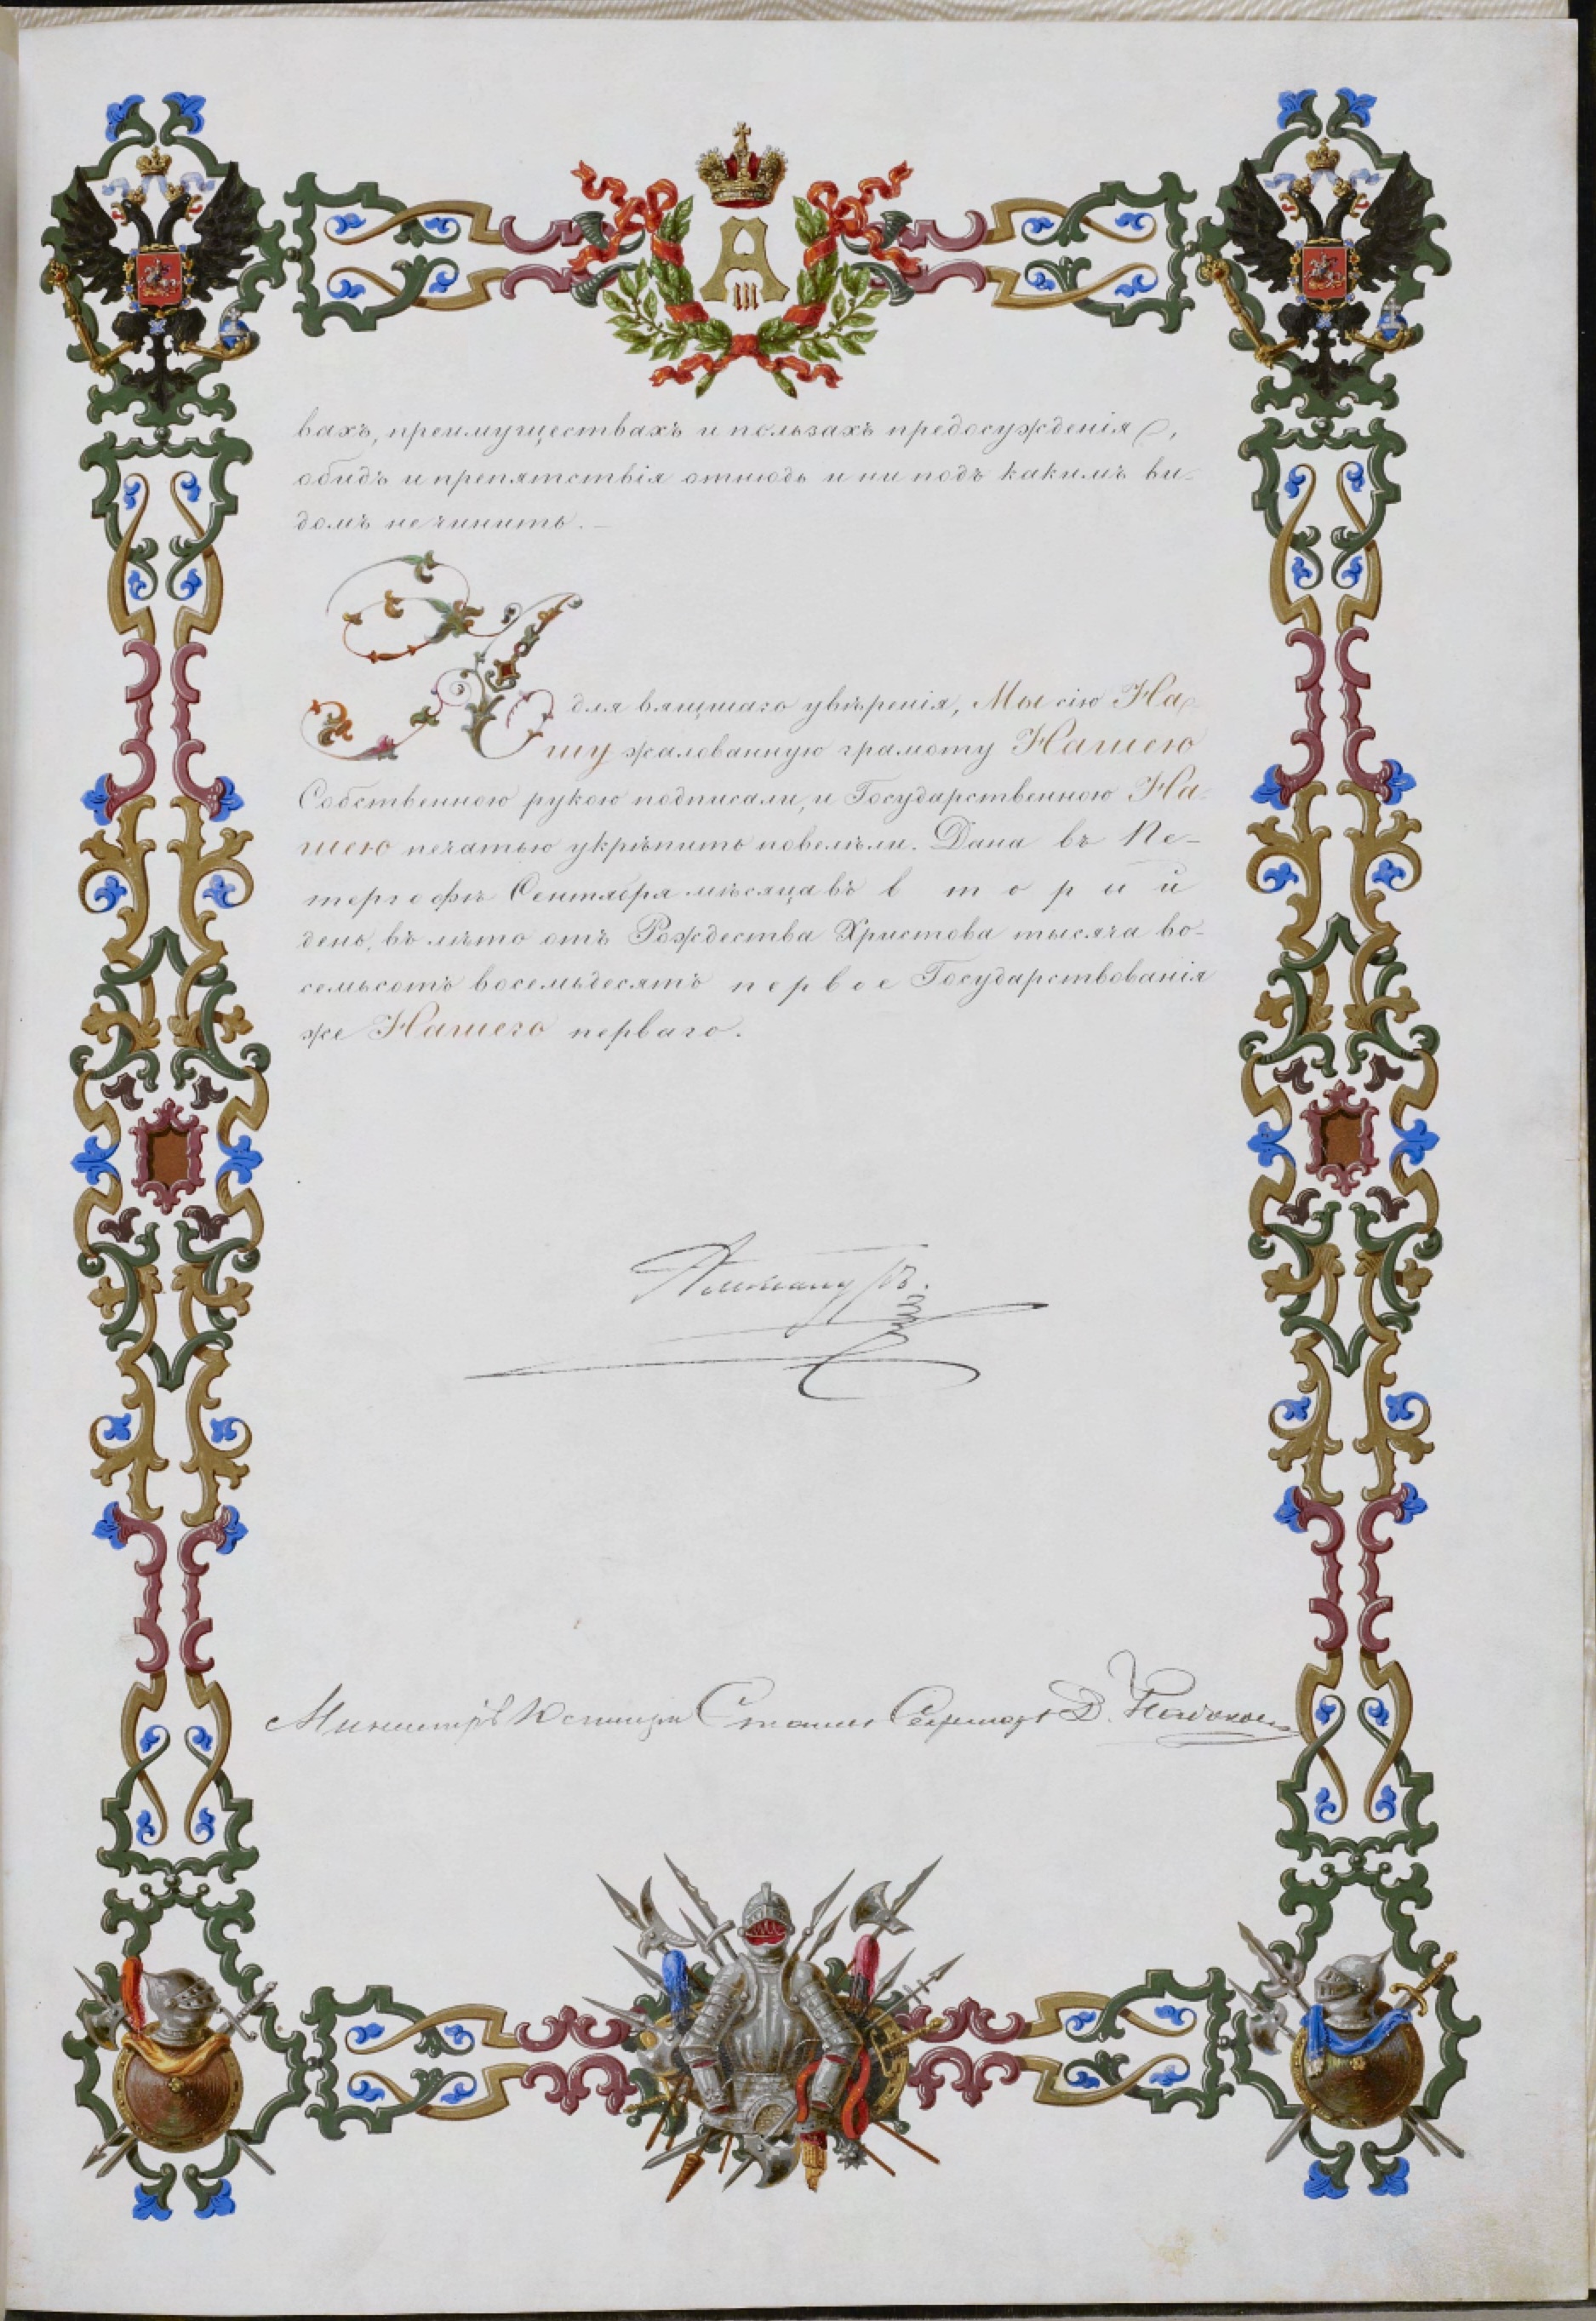 А
III
вахъ, преимуществахъ и пользахъ предосужденія,
обидъ и препятствія отнюдь и ни подъ какимъ ви-
домъ не чинить. —
И для вящшаго увѣренія, Мы сію На-
шу жалованную грамоту Нашею
Собственною рукою подписали, и Государственною На-
шею печатью укрѣпить повелѣли. Дана въ Пе-
тергофѣ Сентября мѣсяца въ вторый
день, въ лѣто отъ Рождества Христова тысяча во-
семьсотъ восемьдесятъ первое Государствованія
же Нашего перваго.
Александръ.
Министръ Юстиціи Статсъ Секретарь Д. Набоковъ